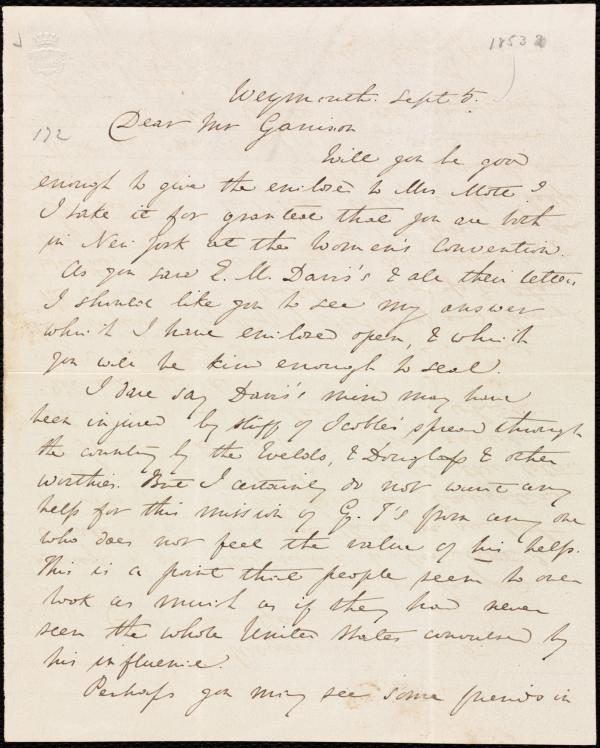 1853
Weymouth. Sept 5.
172
Dear Mr Garrison
Will you be good
enough to give the enclosed to Mrs Mott?
I take it for granted that you are both
in New York at the Women's Convention.
As you saw E. M. Davis's & all their letters
I should like you to see my answer
which I have enclosed open, & which
you will be kind enough to seal.
I dare say Davis's mind may have
been injured by stuff of Scoble's spread through
the country by the &  Douglass & other
worthies. But I certainly do not want any
help for this mission of G. T's from any one
who does not feel the value of his help.
This is a point that people seem to over
look as much as if they had never
seen the whole United States convulsed by
his influence.
Perhaps you may see some friends in